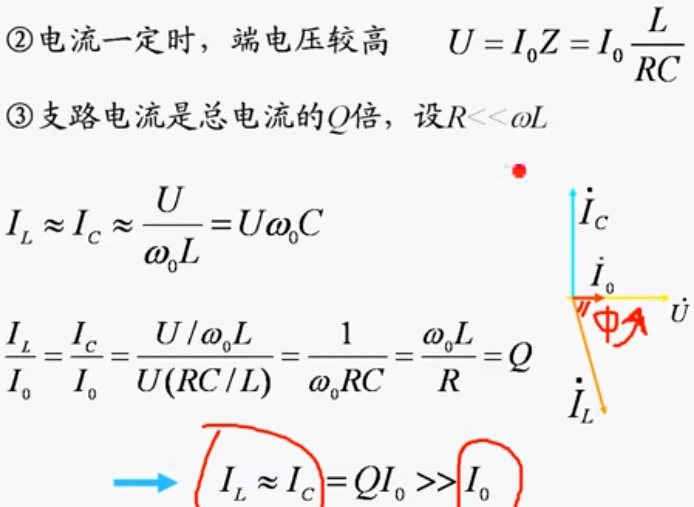 ②电流一定时，端电压较高 U = I₀Z = I₀ L/RC
③支路电流是总电流的Q倍，设R<<ωL
I_L ≈ I_C ≈ U/ω₀L = Uω₀C
İ_C
İ₀
U̇
φ
İ_L
I_L/I₀ = I_C/I₀ = (U/ω₀L)/(U(RC/L)) = 1/ω₀RC = ω₀L/R = Q
I_L ≈ I_C = QI₀ >> I₀